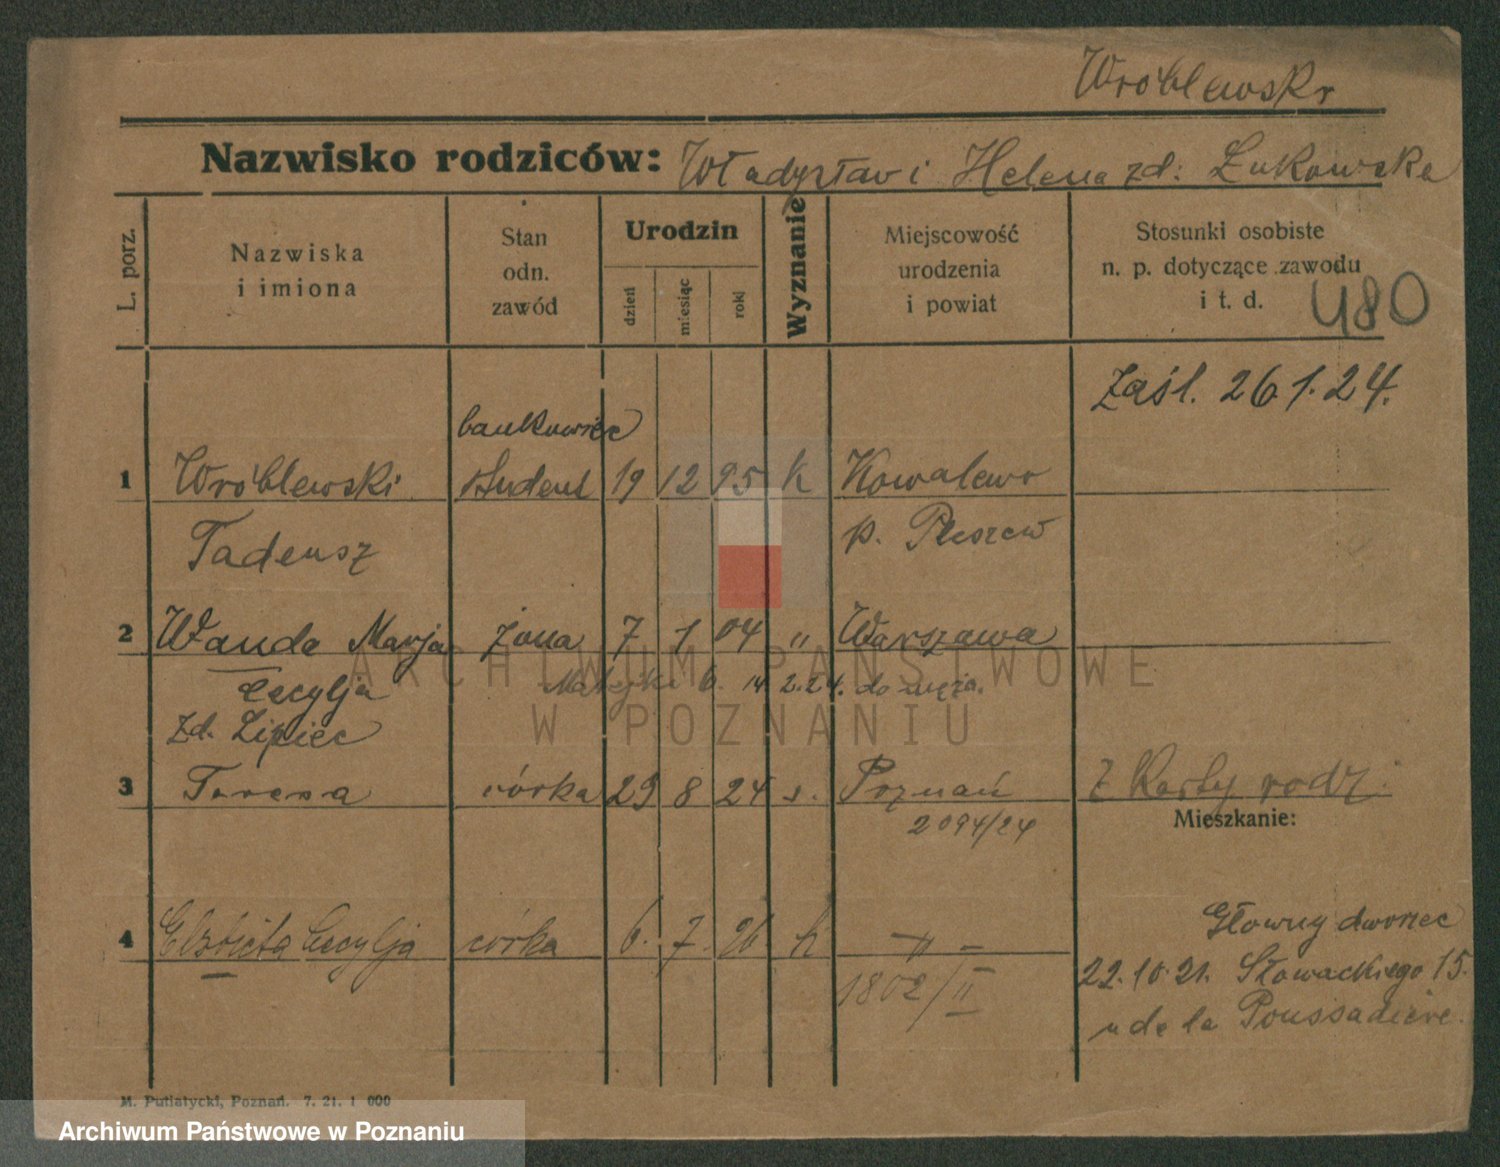 Wróblewski
Nazwisko rodziców: Władysław i Helena zd: Łukowska
L. porz.
Nazwiska i imiona
Stan odn. zawód
Urodzin
dzień
miesiąc
rok
Wyznanie
Miejscowość urodzenia i powiat
Stosunki osobiste n. p. dotyczące zawodu i t. d.
480
Zaśl. 26 1. 24.
bankowiec
1 Wróblewski student 19 12 95 k Kowalewo
Tadeusz p. Pleszew
2 Wanda Marja żona 7 1 04 " Warszawa
Cecylja Matejki 6. 14. 2. 24. do męża.
zd. Lipiec
3 Teresa córka 29 8 24 s. Poznań Z Karty rodz.
2094/24
Mieszkanie:
4 Elżbieta Cecylja córka 6. 7. 26 k — " —
1802/II
Główny dworzec
22.10.21. Słowackiego 15.
u de la Poussadiere.
M. Putiatycki, Poznań. 7. 21. 1 000
ARCHIWUM PAŃSTWOWE
W POZNANIU
Archiwum Państwowe w Poznaniu